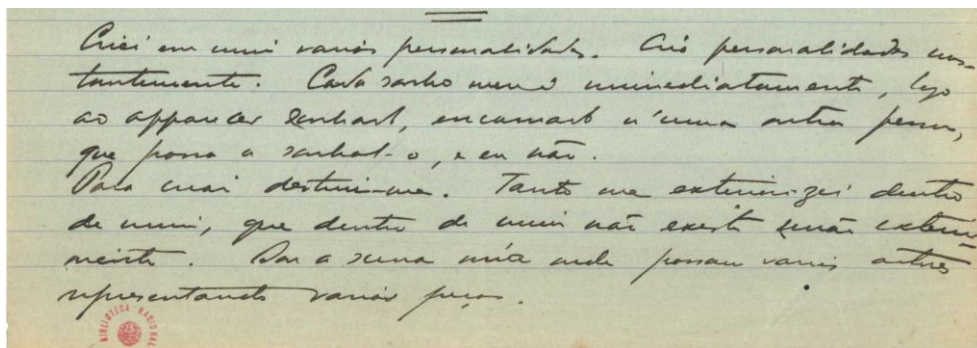 Criei em mim varias personalidades. Crio personalidades cons-
tantemente. Cada sonho meu é immediatamente, logo
ao apparecer sonhado, encarnado n'uma outra pessoa,
que passa a sonhal-o, e eu não.
Para crear destrui-me. Tanto me exteriorizei dentro
de mim, que dentro de mim não existo senão exterior-
mente. Sou a scena viva onde passam varios actores
representando varias peças.
BIBLIOTECA NACIONAL